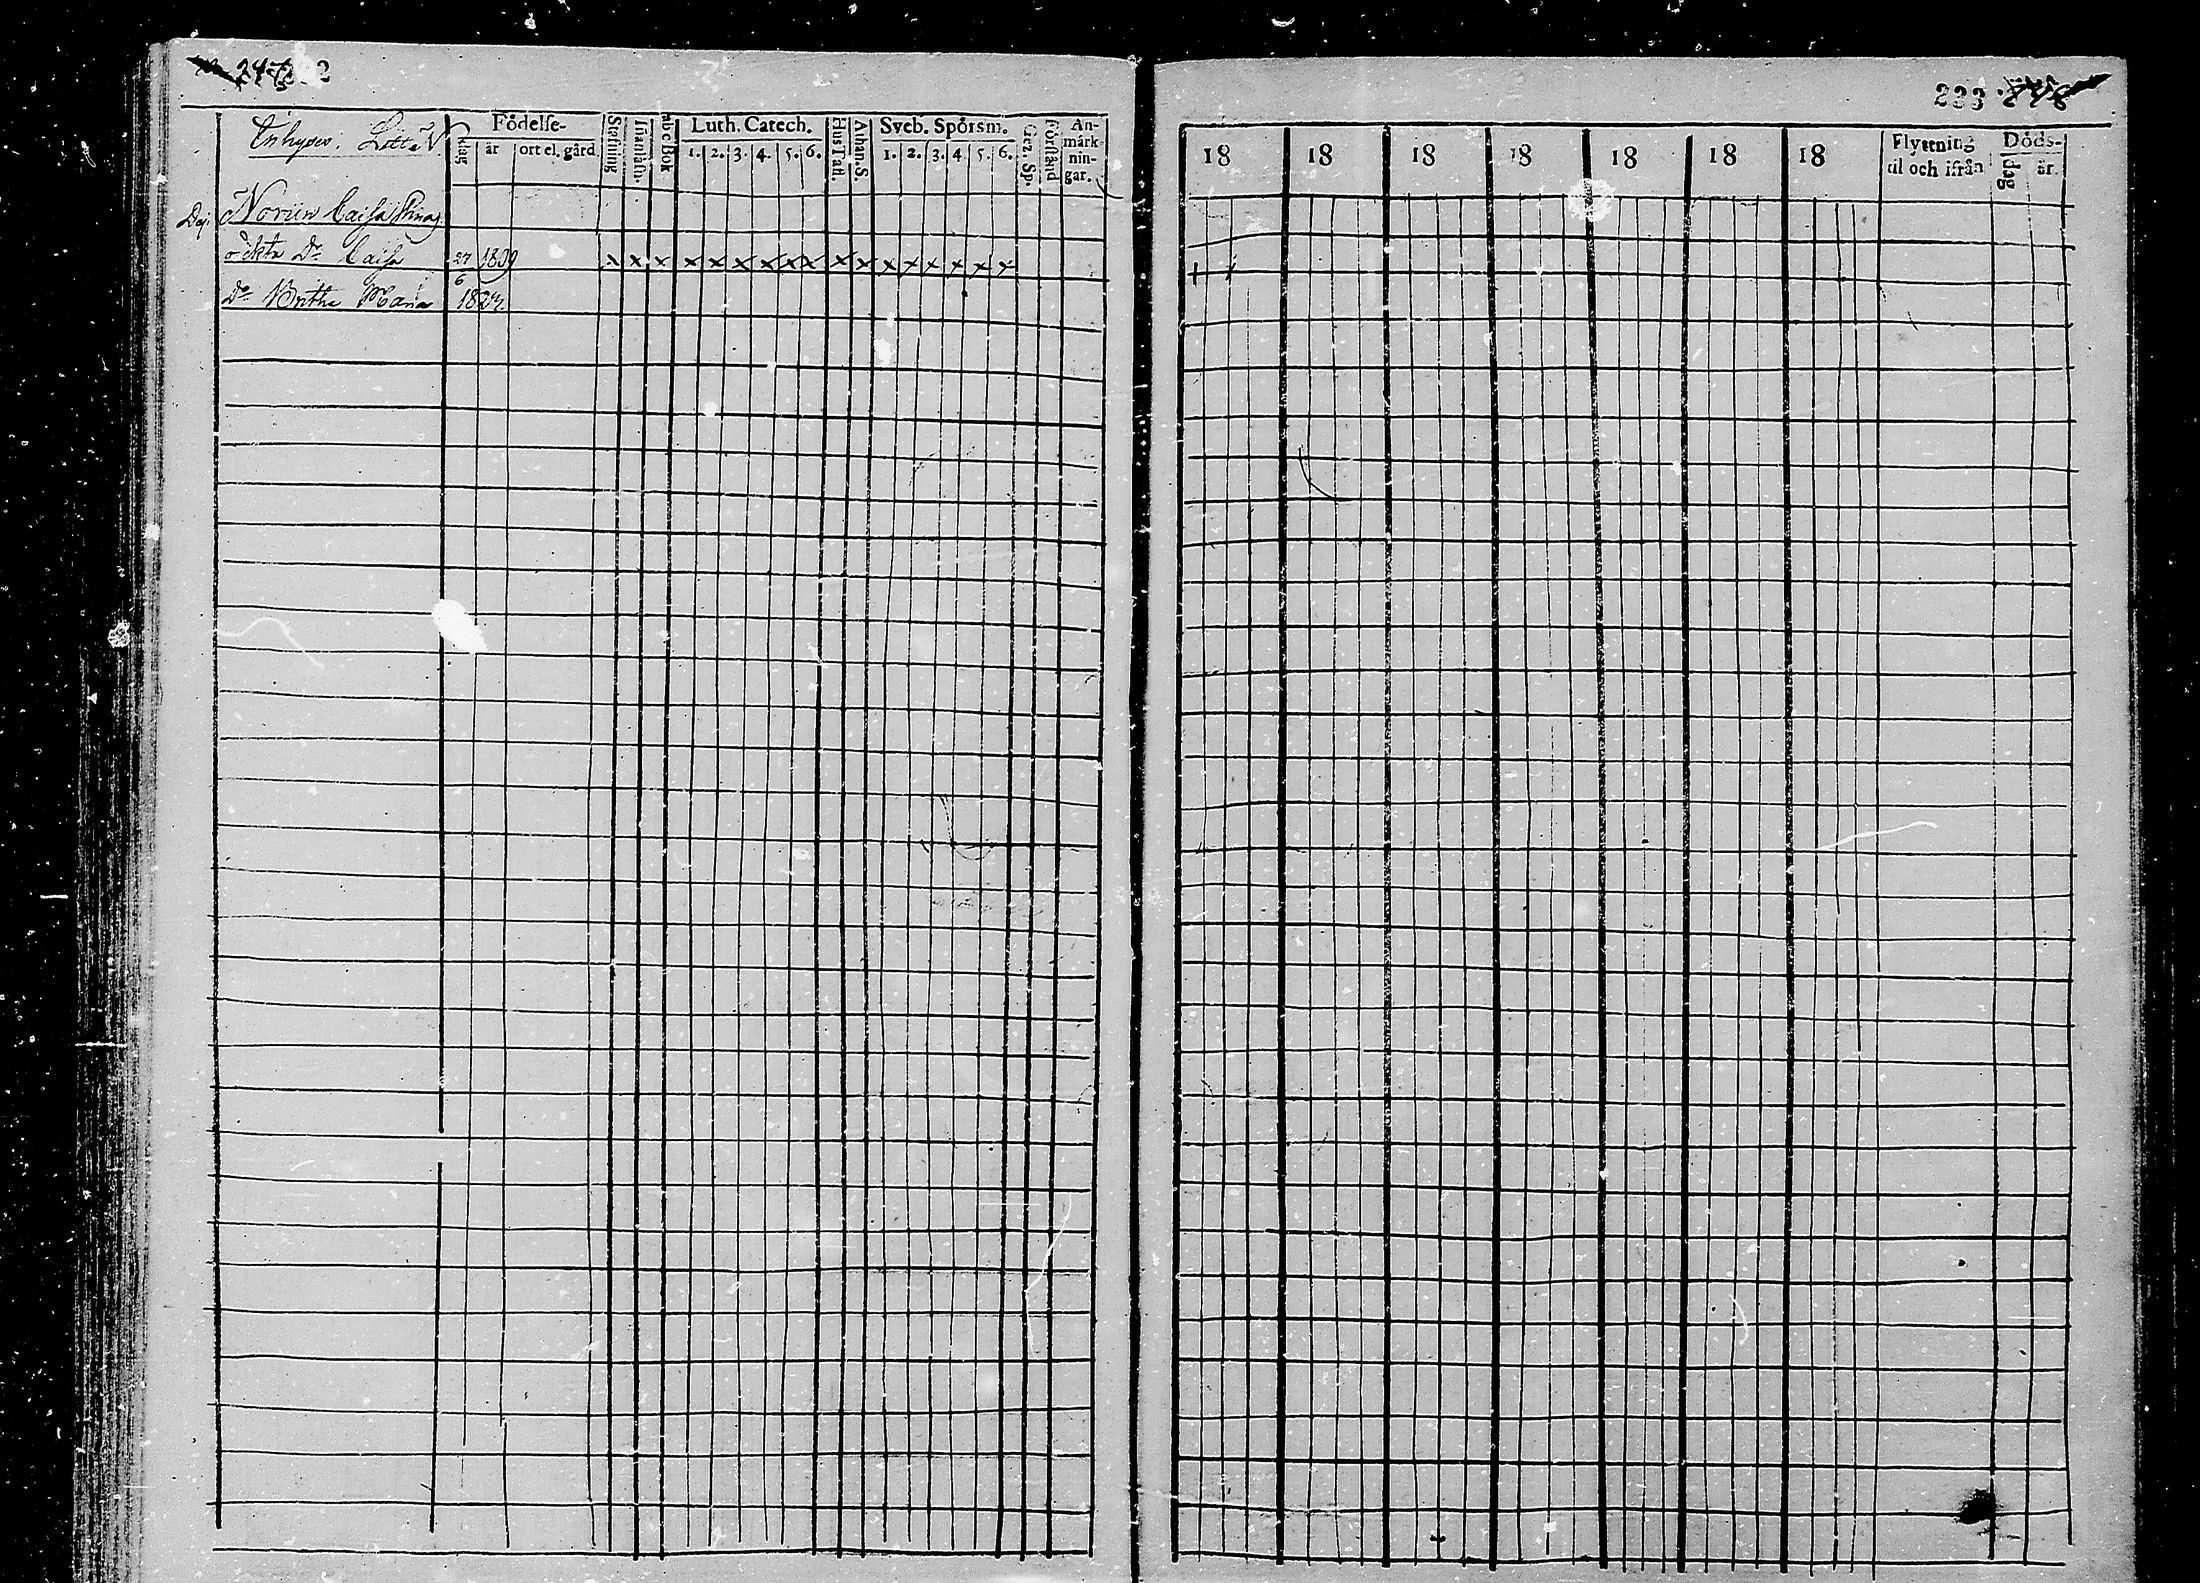 232
Inhyses. Litt. N
Födelse-
dag
år
ort el. gård
Stafning
Innanläsn.
abc Bok
Luth. Catech.
1. 2. 3. 4. 5. 6.
HusTafl.
Athan. S.
Sveb. Spörsm.
1. 2. 3. 4. 5. 6.
Gez. Sp.
Förstånd
An-
märk-
nin-
gar.
Norlin Caisa
oäkta Dr. Caisa 27/6 1809 x x x x x x x x x x x x x x x x x
Dr. Britha Maria
233
18 18 18 18 18 18 18
Flyttning
til och ifrån
Döds-
dag
år.